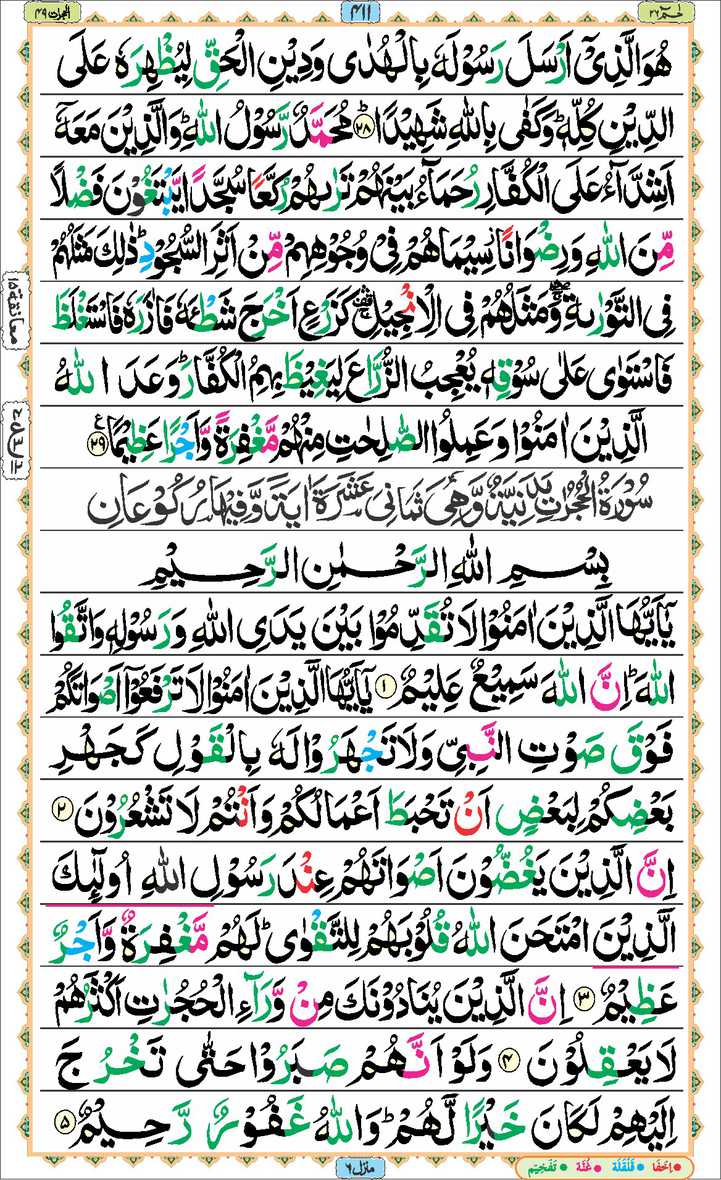 حٰمٓ ۲۶
۴۱۱
الحجرات ۴۹
هُوَ الَّذِیْۤ اَرْسَلَ رَسُوْلَهٗ بِالْهُدٰی وَدِیْنِ الْحَقِّ لِیُظْهِرَهٗ عَلَی
الدِّیْنِ كُلِّهٖ ؕ وَكَفٰی بِاللّٰهِ شَهِیْدًا ؕ ﴿۲۸﴾ مُحَمَّدٌ رَّسُوْلُ اللّٰهِ ؕ وَالَّذِیْنَ مَعَهٗۤ
اَشِدَّآءُ عَلَی الْكُفَّارِ رُحَمَآءُ بَیْنَهُمْ تَرٰىهُمْ رُكَّعًا سُجَّدًا یَّبْتَغُوْنَ فَضْلًا
مِّنَ اللّٰهِ وَرِضْوَانًا ؗ سِیْمَاهُمْ فِیْ وُجُوْهِهِمْ مِّنْ اَثَرِ السُّجُوْدِ ؕ ذٰلِكَ مَثَلُهُمْ
فِی التَّوْرٰىةِ ۛۖۚ وَمَثَلُهُمْ فِی الْاِنْجِیْلِ ۛ۫ۚ كَزَرْعٍ اَخْرَجَ شَطْـَٔهٗ فَاٰزَرَهٗ فَاسْتَغْلَظَ
فَاسْتَوٰی عَلٰی سُوْقِهٖ یُعْجِبُ الزُّرَّاعَ لِیَغِیْظَ بِهِمُ الْكُفَّارَ ؕ وَعَدَ اللّٰهُ
الَّذِیْنَ اٰمَنُوْا وَعَمِلُوا الصّٰلِحٰتِ مِنْهُمْ مَّغْفِرَةً وَّاَجْرًا عَظِیْمًا ﴿۲۹﴾ ع
سُوْرَةُ الْحُجُرٰتِ مَدَنِیَّةٌ وَّهِیَ ثَمَانِیَ عَشْرَةَ اٰیَةً وَّفِیْهَا رُكُوْعَانِ
بِسْمِ اللّٰهِ الرَّحْمٰنِ الرَّحِیْمِ
یٰۤاَیُّهَا الَّذِیْنَ اٰمَنُوْا لَا تُقَدِّمُوْا بَیْنَ یَدَیِ اللّٰهِ وَرَسُوْلِهٖ وَاتَّقُوا
اللّٰهَ ؕ اِنَّ اللّٰهَ سَمِیْعٌ عَلِیْمٌ ﴿۱﴾ یٰۤاَیُّهَا الَّذِیْنَ اٰمَنُوْا لَا تَرْفَعُوْۤا اَصْوَاتَكُمْ
فَوْقَ صَوْتِ النَّبِیِّ وَلَا تَجْهَرُوْا لَهٗ بِالْقَوْلِ كَجَهْرِ
بَعْضِكُمْ لِبَعْضٍ اَنْ تَحْبَطَ اَعْمَالُكُمْ وَاَنْتُمْ لَا تَشْعُرُوْنَ ﴿۲﴾
اِنَّ الَّذِیْنَ یَغُضُّوْنَ اَصْوَاتَهُمْ عِنْدَ رَسُوْلِ اللّٰهِ اُولٰٓئِكَ
الَّذِیْنَ امْتَحَنَ اللّٰهُ قُلُوْبَهُمْ لِلتَّقْوٰی ؕ لَهُمْ مَّغْفِرَةٌ وَّاَجْرٌ
عَظِیْمٌ ﴿۳﴾ اِنَّ الَّذِیْنَ یُنَادُوْنَكَ مِنْ وَّرَآءِ الْحُجُرٰتِ اَكْثَرُهُمْ
لَا یَعْقِلُوْنَ ﴿۴﴾ وَلَوْ اَنَّهُمْ صَبَرُوْا حَتّٰی تَخْرُجَ
اِلَیْهِمْ لَكَانَ خَیْرًا لَّهُمْ ؕ وَاللّٰهُ غَفُوْرٌ رَّحِیْمٌ ﴿۵﴾
معانقة ۱۵
منزل ۶
• اِخفَا • قَلْقَلَة • غُنَّة • تَفْخِیْم